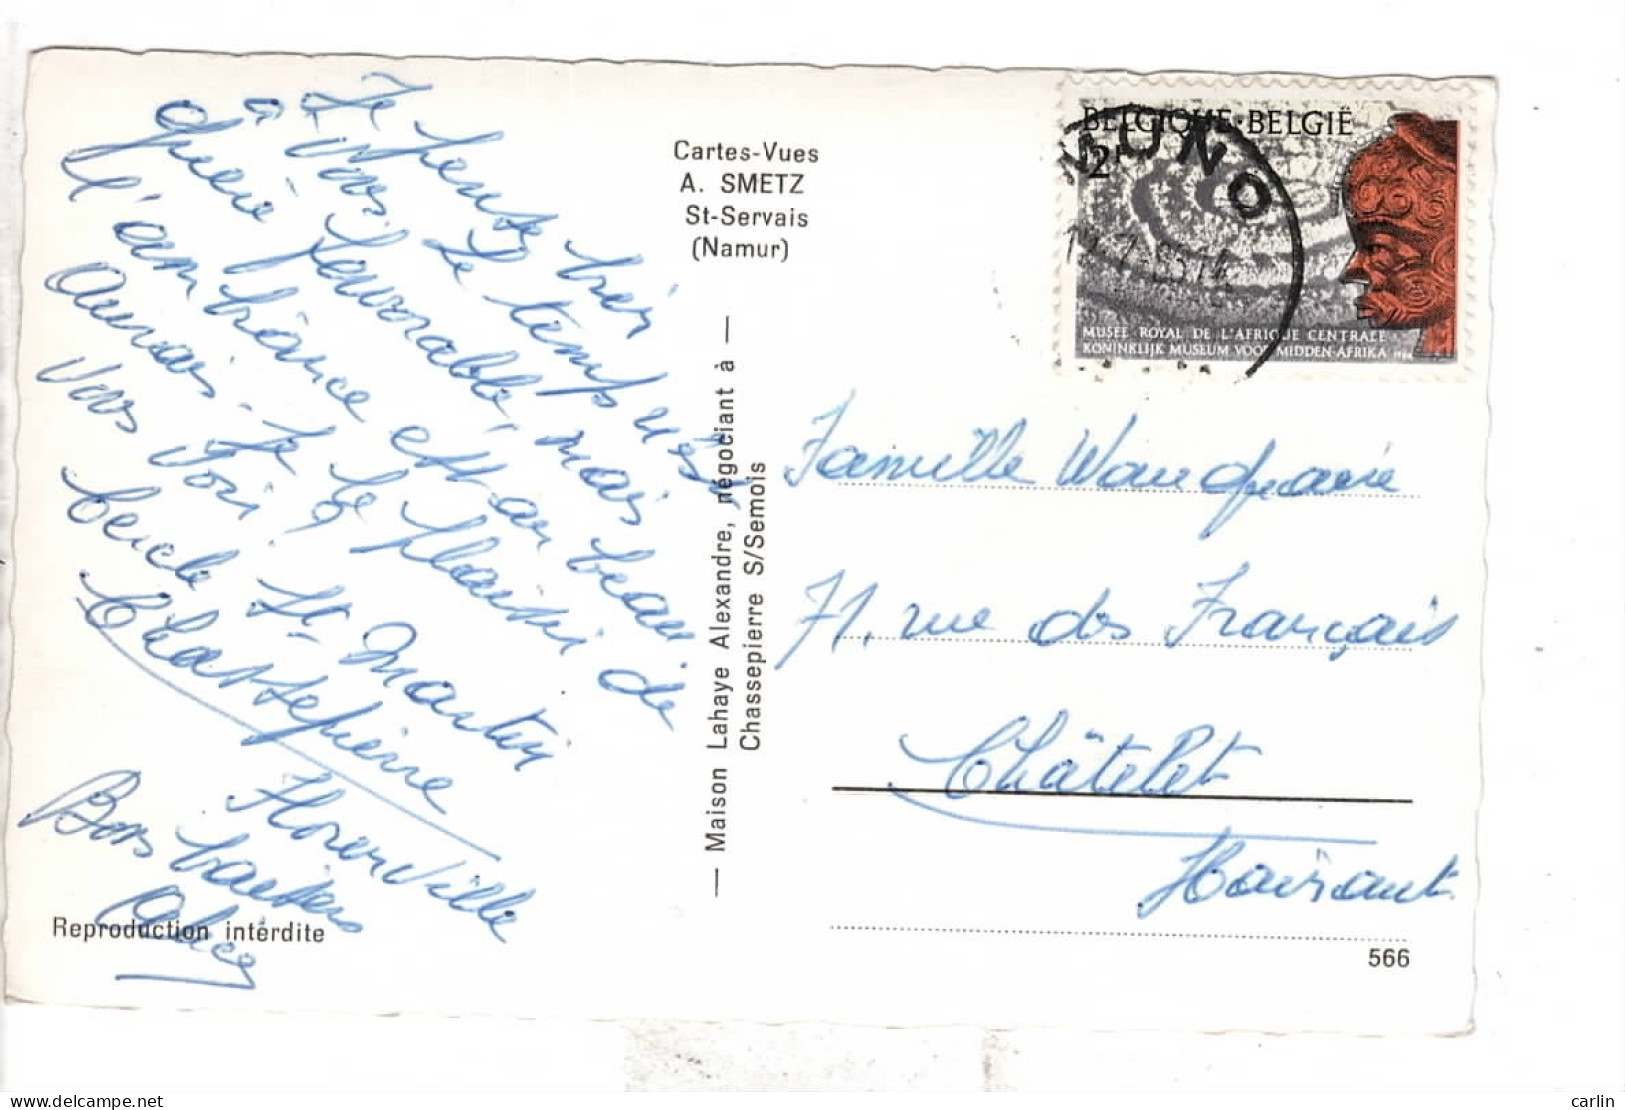 Je pense bien
à vous. Le temps n'est
guère favorable, mais
l'ambiance est au beau
Aurais-je le plaisir de
vous voir ?
Cercle St Martin
Chassepierre
Florenville
Bons baisers
Cartes-Vues
A. SMETZ
St-Servais
(Namur)
— Maison Lahaye Alexandre, négociant à —
Chassepierre S/Semois
BELGIQUE·BELGIË
2F
MUNO
MUSEE ROYAL DE L'AFRIQUE CENTRALE
KONINKLIJK MUSEUM VOOR MIDDEN-AFRIKA
Famille
71, rue des Français
Châtelet
Hainaut
Reproduction intérdite
566
carlin